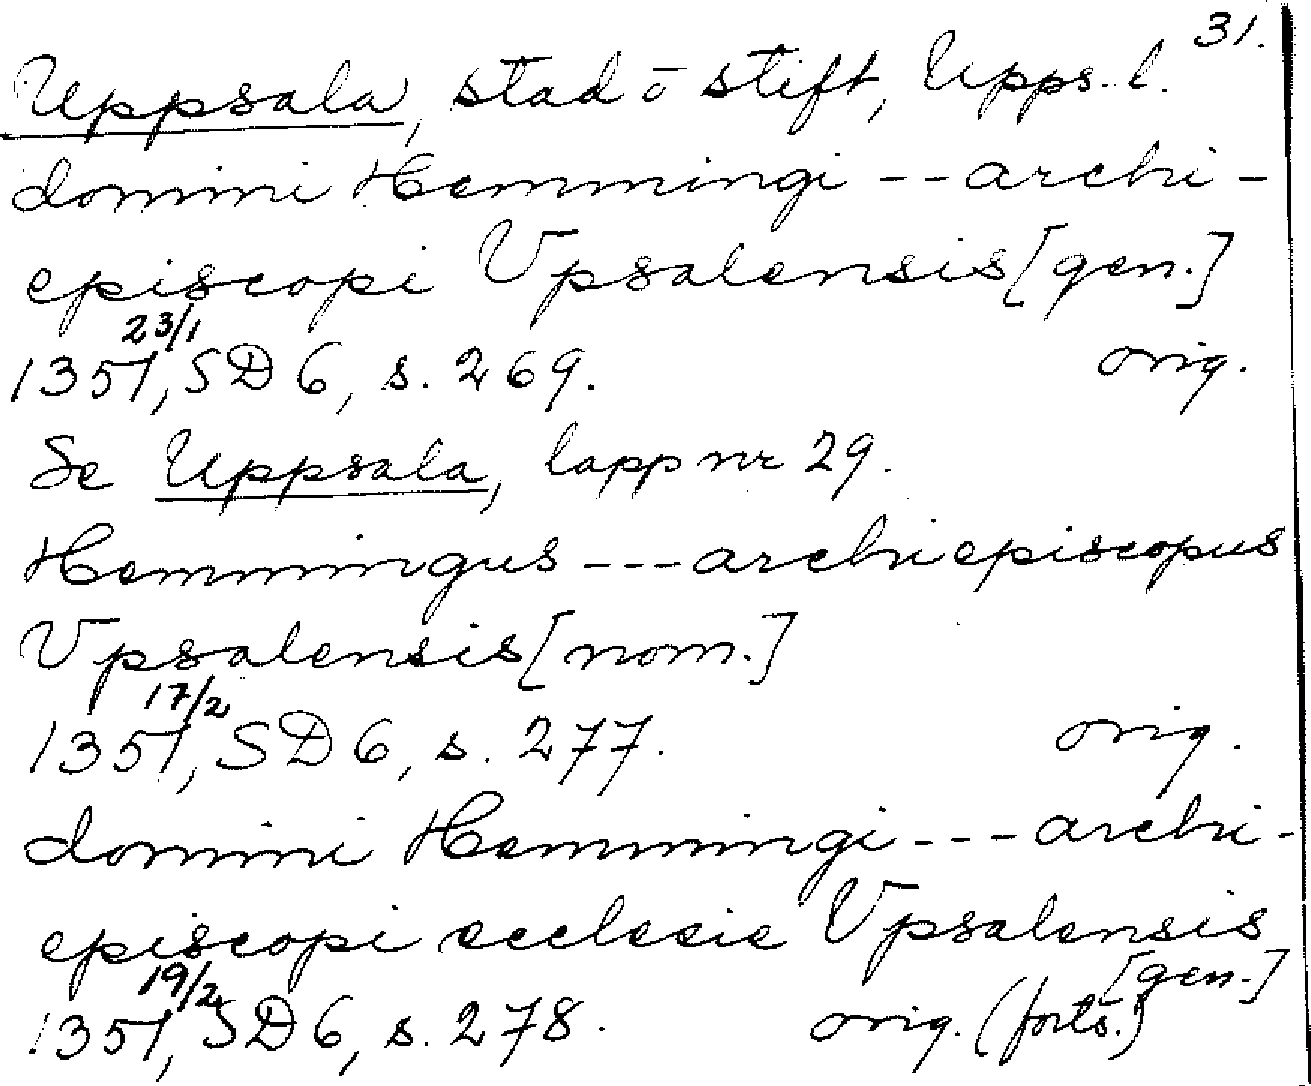 31.
Uppsala, stad o stift, Upps. l.
domini Hemmingi -- archi-
episcopi Vpsalensis [gen.]
23/1
1351, SD 6, s. 269. orig.
Se Uppsala, lapp nr 29.
Hemmingus --- archiepiscopus
Vpsalensis [nom.]
17/2
1351, SD 6, s. 277. orig.
domini Hemmingi --- archi-
episcopi ecclesie Vpsalensis
[gen.]
19/2
1351, SD 6, s. 278. orig. (forts.)